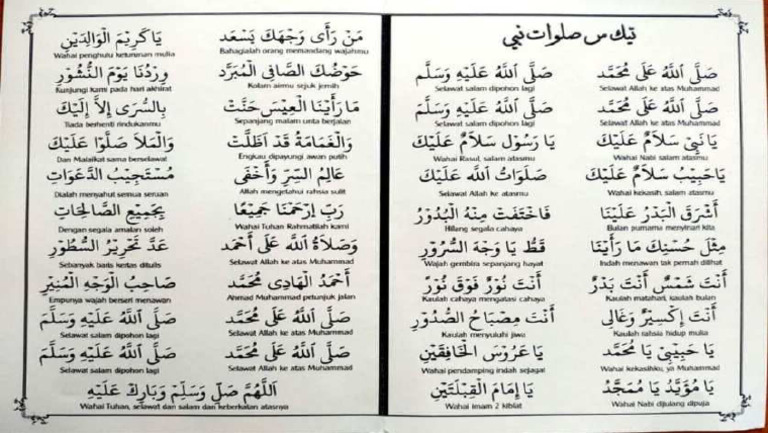 تيک س صلوات نبي
صَلَّى اللهُ عَلَى مُحَمَّد صَلَّى اللهُ عَلَيْهِ وَسَلَّم
Selawat Allah ke atas Muhammad Selawat salam dipohon lagi
صَلَّى اللهُ عَلَى مُحَمَّد صَلَّى اللهُ عَلَيْهِ وَسَلَّم
Selawat Allah ke atas Muhammad Selawat salam dipohon lagi
يَا نَبِيْ سَلَامٌ عَلَيْكَ يَا رَسُوْل سَلَامٌ عَلَيْكَ
Wahai Nabi salam atasmu Wahai Rasul, salam atasmu
يَا حَبِيْبُ سَلَامٌ عَلَيْكَ صَلَوَاتُ اللهِ عَلَيْكَ
Wahai kekasih, salam atasmu Selawat Allah ke atasmu
أَشْرَقَ الْبَدْرُ عَلَيْنَا فَاخْتَفَتْ مِنْهُ الْبُدُوْرُ
Bulan purnama menyinari kita Hilang segala cahaya
مِثْلَ حُسْنِكَ مَا رَأَيْنَا قَطُّ يَا وَجْهَ السُّرُوْرِ
Indah menawan tak pernah dilihat Wajah gembira sepanjang hayat
أَنْتَ شَمْسٌ أَنْتَ بَدْرٌ أَنْتَ نُوْرٌ فَوْقَ نُوْرٍ
Kaulah matahari, kaulah bulan Kaulah cahaya mengatasi cahaya
أَنْتَ إِكْسِيْرٌ وَغَالِى أَنْتَ مِصْبَاحُ الصُّدُوْرِ
Kaulah rahsia hidup mulia Kaulah menyuluhi jiwa
يَا حَبِيْبِىْ يَا مُحَمَّد يَا عَرُوْسَ الْخَافِقَيْنِ
Wahai kekasihku, ya Muhammad Wahai pendamping indah sejagat
يَا مُؤَيَّد يَا مُمَجَّد يَا إِمَامَ الْقِبْلَتَيْنِ
Wahai Nabi dijulang dipuja Wahai imam 2 kiblat
مَنْ رَأَى وَجْهَكَ يَسْعَد يَا كَرِيْمَ الْوَالِدَيْنِ
Bahagialah orang memandang wajahmu Wahai penghulu keturunan mulia
حَوْضُكَ الصَّافِى الْمُبَرَّد وِرْدُنَا يَوْمَ النُّشُوْرِ
Kolam airmu sejuk jernih Kunjungi kami pada hari akhirat
مَا رَأَيْنَا الْعِيْسَ حَنَّتْ بِالسُّرَى إِلاَّ إِلَيْكَ
Sepanjang malam unta berjalan Tiada berhenti rindukanmu
وَالْغَمَامَةُ قَدْ اَظَلَّتْ وَالْمَلاَ صَلُّوْا عَلَيْكَ
Engkau dipayungi awan putih Dan Malaikat sama berselawat
عَالِمُ السِّرِّ وَأَخْفَى مُسْتَجِيْبُ الدَّعَوَاتِ
Allah mengetahui rahsia sulit Dialah menyahut semua seruan
رَبِّ اِرْحَمْنَا جَمِيْعًا بِجَمِيْعِ الصَّالِحَاتِ
Wahai Tuhan Rahmatilah kami Dengan segala amalan soleh
وَصَلاَةُ اللهِ عَلَى أَحْمَد عَدَّ تَحْرِيْرِ السُّطُوْرِ
Selawat Allah ke atas Muhammad Sebanyak baris kertas ditulis
أَحْمَدُ الْهَادِى مُحَمَّد صَاحِبُ الْوَجْهِ الْمُنِيْرِ
Ahmad Muhammad petunjuk jalan Empunya wajah berseri menawan
صَلَّى اللهُ عَلَى مُحَمَّد صَلَّى اللهُ عَلَيْهِ وَسَلَّم
Selawat Allah ke atas Muhammad Selawat salam dipohon lagi
صَلَّى اللهُ عَلَى مُحَمَّد صَلَّى اللهُ عَلَيْهِ وَسَلَّم
Selawat Allah ke atas Muhammad Selawat salam dipohon lagi
اَللّٰهُمَّ صَلِّ وَسَلِّمْ وَبَارِكْ عَلَيْهِ
Wahai Tuhan, selawat dan salam dan keberkatan atasnya